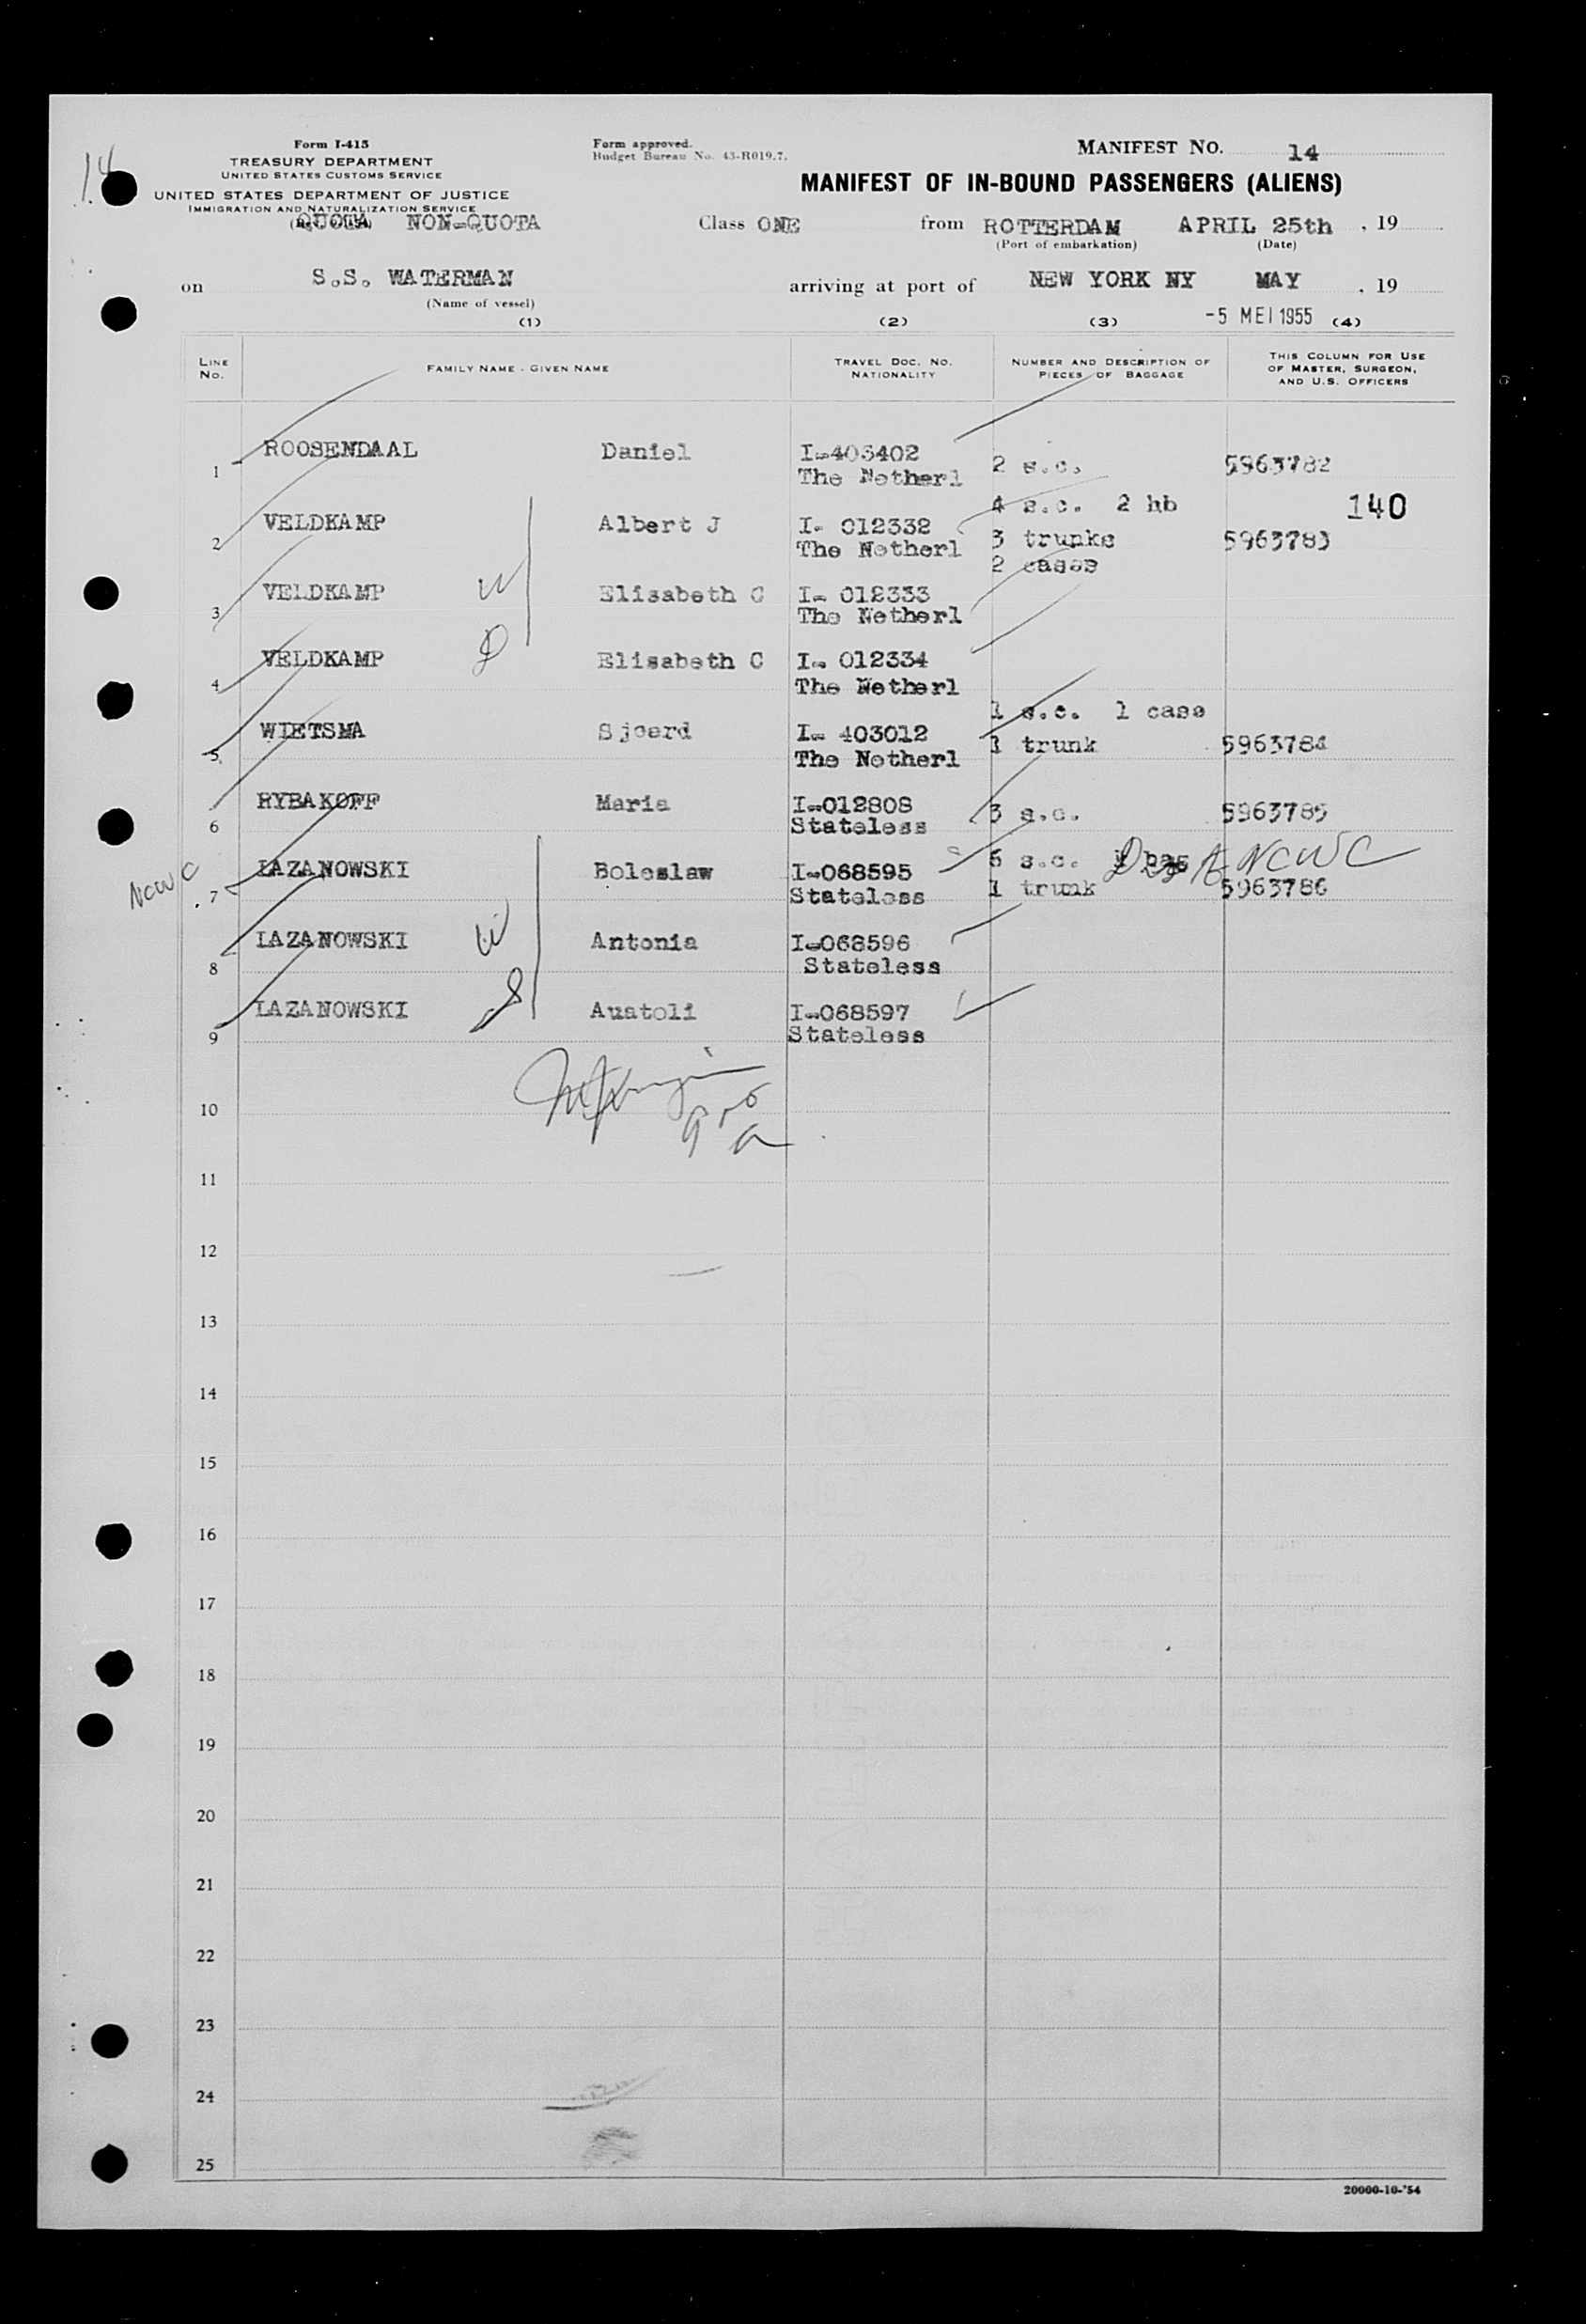 14
Form I-415
TREASURY DEPARTMENT
UNITED STATES CUSTOMS SERVICE
UNITED STATES DEPARTMENT OF JUSTICE
IMMIGRATION AND NATURALIZATION SERVICE
Form approved.
Budget Bureau No. 43-R019.7.
MANIFEST NO. 14
MANIFEST OF IN-BOUND PASSENGERS (ALIENS)
QUOTA NON-QUOTA Class ONE from ROTTERDAM APRIL 25th, 19
(Port of embarkation) (Date)
on S.S. WATERMAN arriving at port of NEW YORK NY MAY , 19
(Name of vessel)
-5 MEI 1955
(1) (2) (3) (4)
LINE NO. FAMILY NAME - GIVEN NAME TRAVEL DOC. NO. NATIONALITY NUMBER AND DESCRIPTION OF PIECES OF BAGGAGE THIS COLUMN FOR USE OF MASTER, SURGEON, AND U.S. OFFICERS
1 ROOSENDAAL Daniel I-403402 2 s.c. 5963782
The Netherl
4 s.c. 2 hb 140
2 VELDKAMP Albert J I- 012332 3 trunks 5963783
The Netherl 2 cases
3 VELDKAMP W Elisabeth C I- 012333
The Netherl
4 VELDKAMP D Elisabeth C I- 012334
The Netherl
1 s.c. 1 case
5 WIETSMA Sjoerd I- 403012 1 trunk 5963784
The Netherl
6 RYBAKOFF Maria I-012808 3 s.c. 5963785
Stateless
NCWC 7 LAZANOWSKI Boleslaw I-068595 5 s.c. 1 bag NCWC
Stateless 1 trunk 5963786
8 LAZANOWSKI W Antonia I-068596
Stateless
9 LAZANOWSKI S Auatoli I-068597
Stateless
10
11
12
13
14
15
16
17
18
19
20
21
22
23
24
25
20000-10-'54